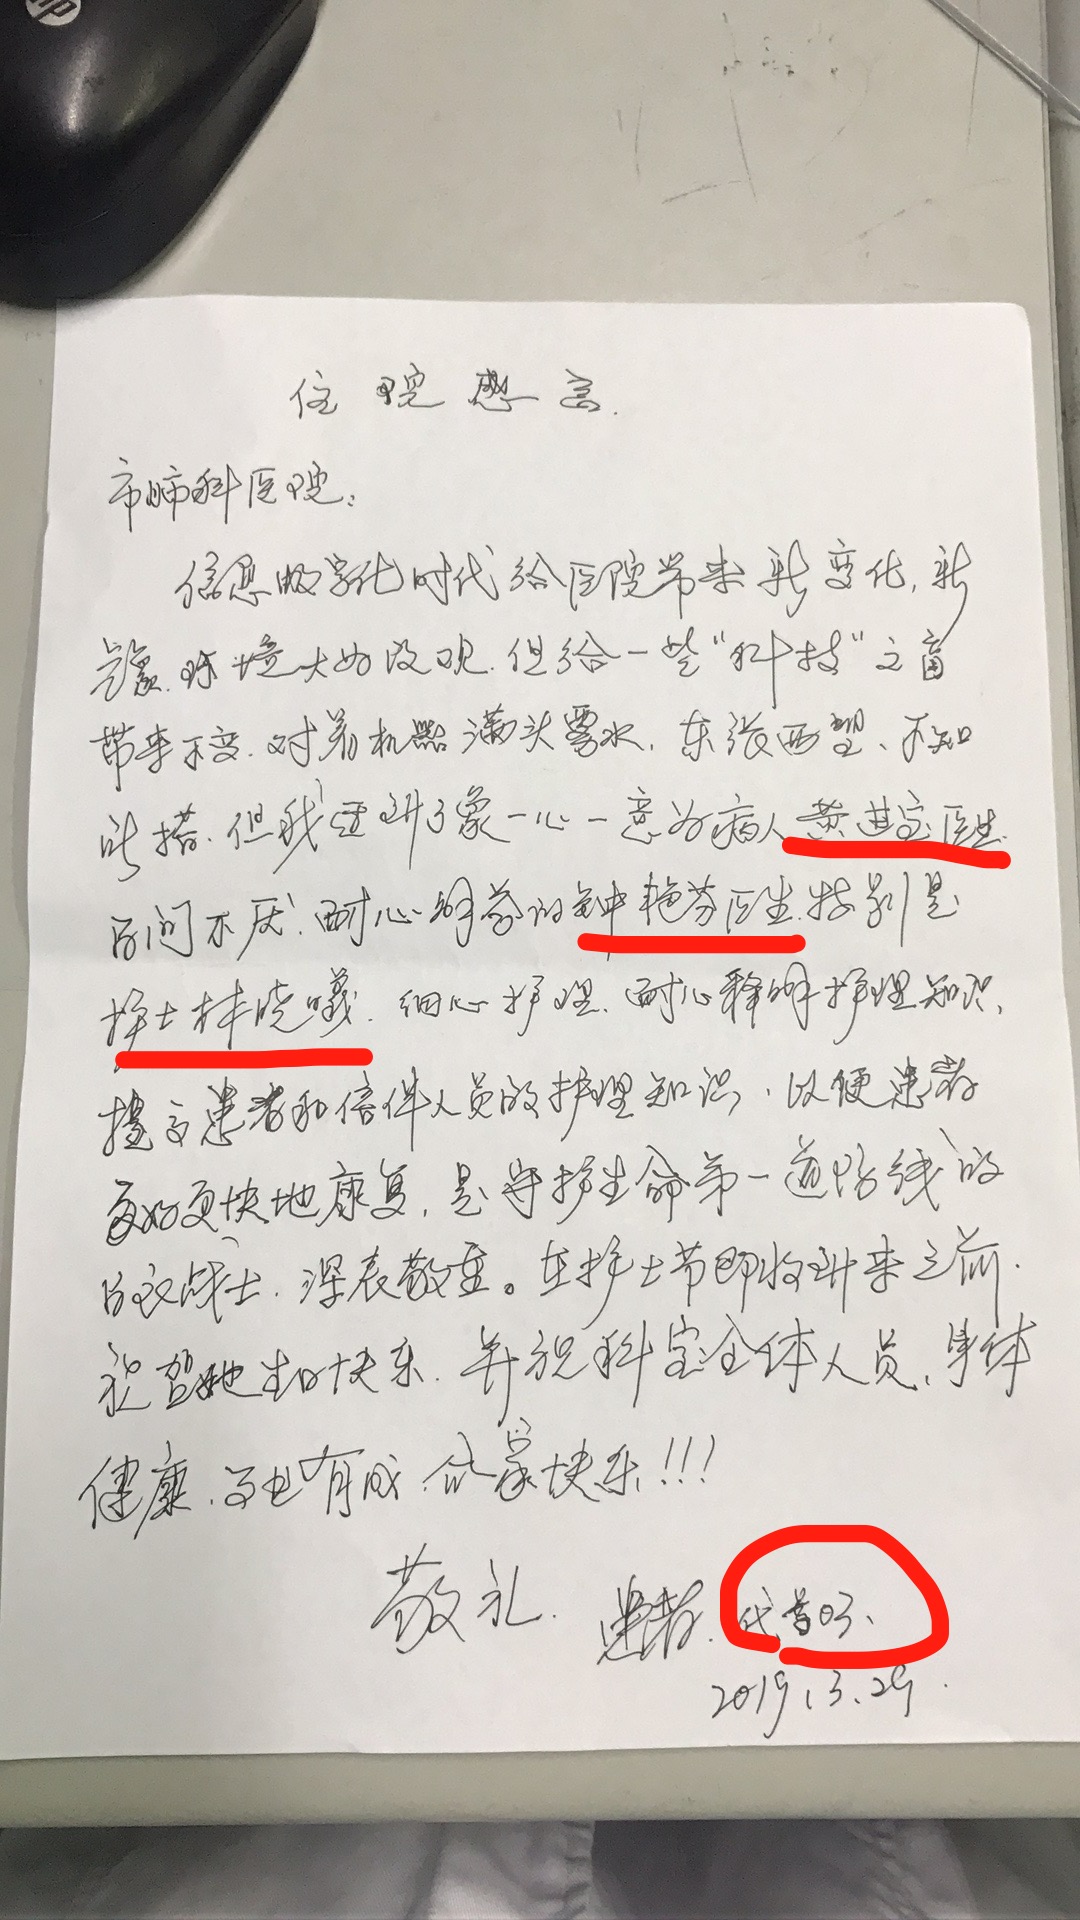 hp
住院感言.
市肺科医院:
信息数字化时代给医院带来新变化,新
气象.环境大为改观.但给一些“科技”之盲
带来不变.对着机器满头雾水,东张西望、不知
所措.但我遇到了象一心一意为病人黄进宝医生.
百问不厌.耐心解答的钟艳芬医生.特别是
护士林晓曦.细心护理.耐心释解护理知识,
提高患者和倍伴人员的护理知识,以便患者
更好更快地康复,是守护生命第一道防线的
白衣战士.深表敬重。在护士节即将到来之前.
祝贺她生日快乐.并祝科室全体人员,身体
健康.事业有成.合家快乐!!!
敬礼.
患者.
2019.3.29.